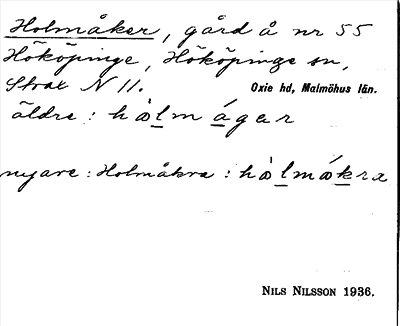 Holmåker, gård å nr 55
Hököpinge, Hököpinge sn,
Strax N 11. Oxie hd, Malmöhus län.
äldre : hòlm ágar
nyare : Holmåkra : hòlmákra
NILS NILSSON 1936.